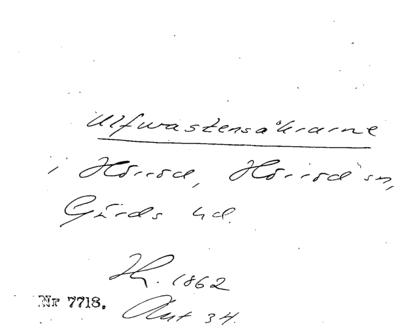 Ulfwastensåkrarne
i Hörröd, Hörröd sn,
Gärds hd.
1862
Nr 7718.
Akt 34.